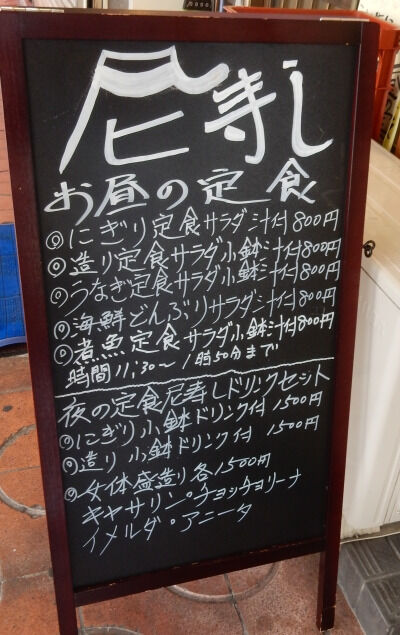 尼寿し
お昼の定食
◎にぎり定食サラダ汁付800円
◎造り定食サラダ小鉢汁付800円
◎うなぎ定食サラダ小鉢汁付800円
◎海鮮どんぶりサラダ汁付800円
◎煮魚定食サラダ小鉢汁付800円
時間11:30〜1時50分まで
夜の定食尼寿しドリンクセット
◎にぎり小鉢ドリンク付1500円
◎造り小鉢ドリンク付1500円
◎女体盛造り各1500円
キャサリン・チョッチョリーナ
イメルダ・アニータ